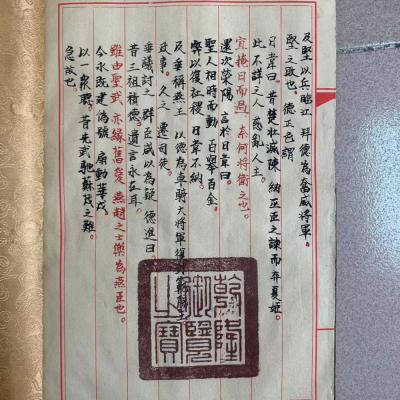 及堅以兵臨江 拜德為奮威將軍
堅之敗也 德正色謂
日韋曰 昔楚莊滅陳 納巫臣之諫而弃夏姬
此不詳之人 惑亂人主
宜掩目而過 柰何將衛之也
還次滎陽 言於日韋曰
聖人相時而動 百舉百全
弊以復社稷 日韋不納
及垂稱燕王 以德為車騎大將軍 復封
政事 久之 遷司徒
垂議討之 群臣咸以為疑 德進曰
昔三祖積德 遺言永在耳
雖由聖武 亦緣舊愛 燕趙之士樂為燕臣也
今永既建偽號 扇動華戎
以一衆聽 昔光武馳蘇茂之難
急故也
乾隆
御覽
之寶